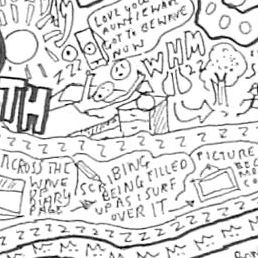 LOVE YOU
AUNTIE WAV
GOT TO BEWAVE
NOW
WHM
TH
Z Z Z
ACROSS THE
WAVE
DIARY
PAGE
SCRIBING
BEING FILLED
UP AS I SURF
OVER IT
PICTURE
BE
Z Z Z Z Z Z Z Z Z Z Z